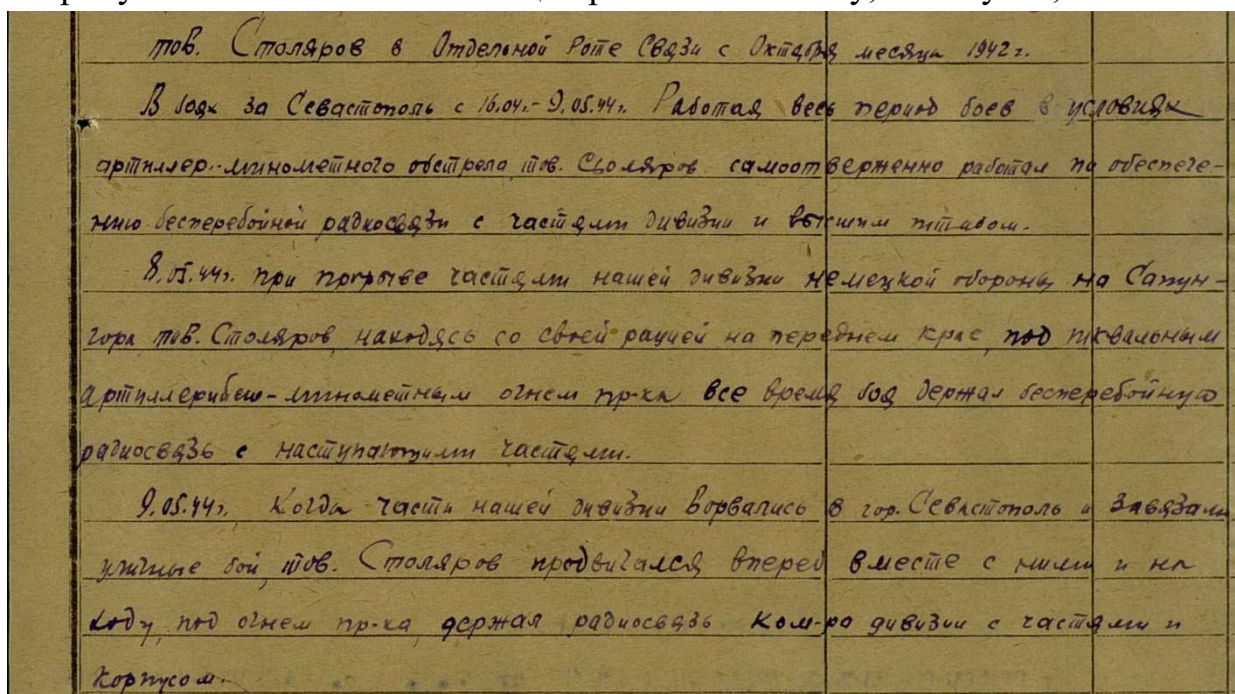 тов. Столяров в Отдельной Роте Связи с Октября месяца 1942 г.
В боях за Севастополь с 16.04.-9.05.44г. Работая весь период боев в условиях
артиллер.-минометного обстрела, тов. Столяров самоотверженно работал по обеспече-
нию бесперебойной радиосвязи с частями дивизии и высшим штабом.
8.05.44г. при прорыве частями нашей дивизии немецкой обороны на Сапун-
гора, тов. Столяров, находясь со своей рацией на переднем крае, под шквальным
артиллерийско-минометным огнем пр-ка все время боя держал бесперебойную
радиосвязь с наступающими частями.
9.05.44г. Когда части нашей дивизии ворвались в гор. Севастополь и завязали
уличные бои, тов. Столяров продвигался вперед вместе с ними и на
ходу, под огнем пр-ка, держал радиосвязь Ком-ра дивизии с частями и
корпусом.